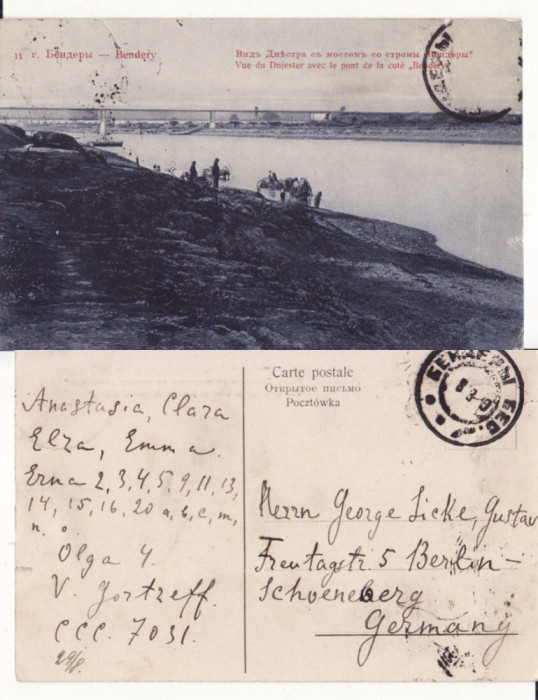 11 г. Бендеры — Bendery
Видъ Днѣстра съ мостомъ со строны „Бендеры“
Vue du Dnjester avec le pont de la coté „Bendery“
Carte postale
Открытое письмо
Pocztówka
БЕНДЕРЫ БЕС.
Anastasia, Clara
Elza, Emma.
Erna 2,3,4,5,9,11,13,
14, 15, 16, 20 a, b, c, m,
n. o.
Olga 4.
V. Gortzeff.
CCC. 7031.
Herrn George Licke, Gustav
Freytagstr. 5 Berlin-
Schoeneberg
Germany